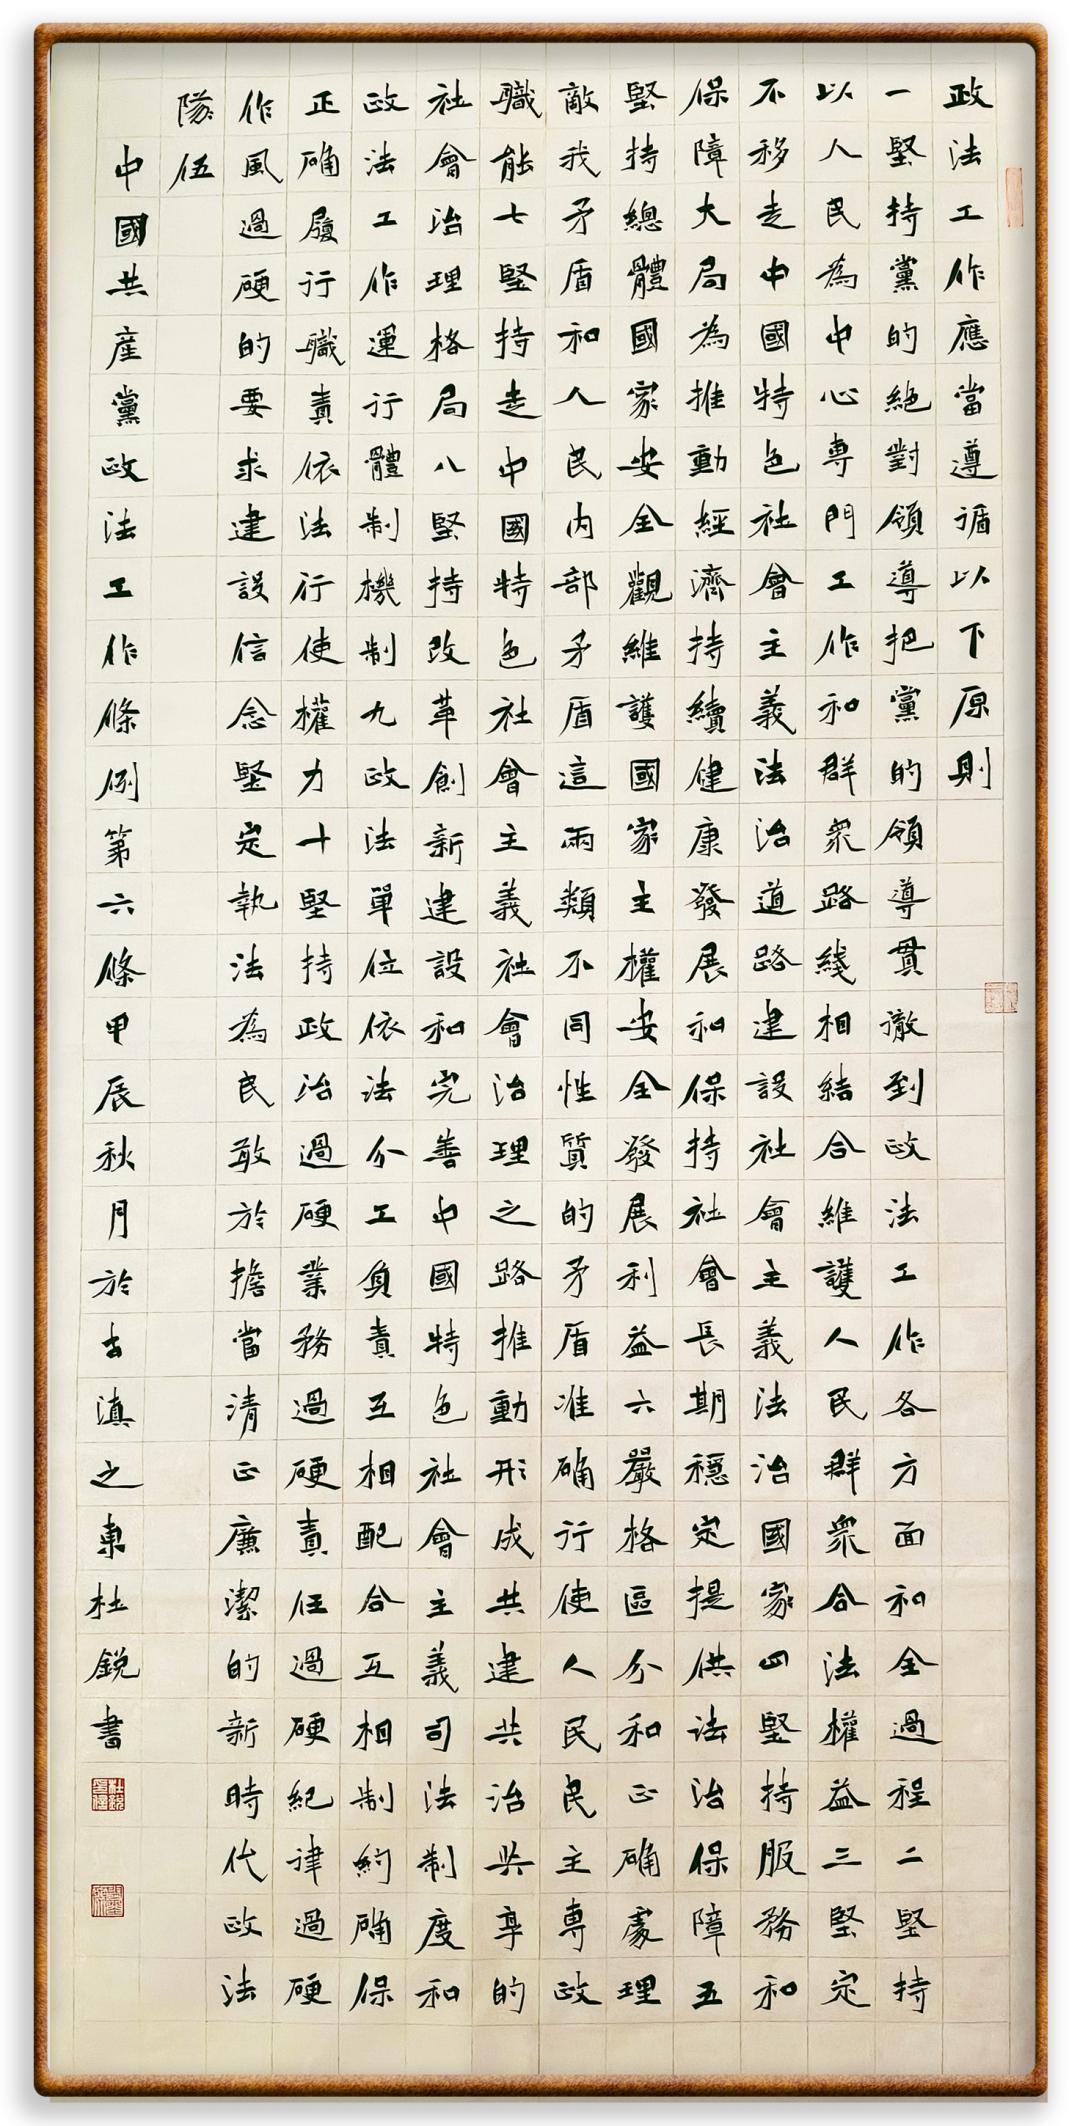 政法工作應當遵循以下原則
一堅持黨的絕對領導把黨的領導貫徹到政法工作各方面和全過程二堅持
以人民為中心專門工作和群衆路綫相結合維護人民群衆合法權益三堅定
不移走中國特色社會主義法治道路建設社會主義法治國家四堅持服務和
保障大局為推動經濟持續健康發展和保持社會長期穩定提供法治保障五
堅持總體國家安全觀維護國家主權安全發展利益六嚴格區分和正確處理
敵我矛盾和人民內部矛盾這兩類不同性質的矛盾准确行使人民民主專政
職能七堅持走中國特色社會主義社會治理之路推動形成共建共治共享的
社會治理格局八堅持改革創新建設和完善中國特色社會主義司法制度和
政法工作運行體制機制九政法單位依法分工負責互相配合互相制約确保
正确履行職責依法行使權力十堅持政治過硬業務過硬責任過硬紀律過硬
作風過硬的要求建設信念堅定執法為民敢於擔當清正廉潔的新時代政法
隊伍
中國共產黨政法工作條例第六條甲辰秋月於古滇之東杜銳書